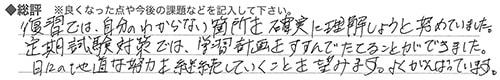 ◆総評 ※良くなった点や今後の課題などを記入して下さい。
復習では、自分のわからない箇所を確実に理解しようと努めていました。
定期試験対策では、学習計画をすすんでたてることができました。
日々の地道な努力を継続していくことを望みます。よくがんばっています。